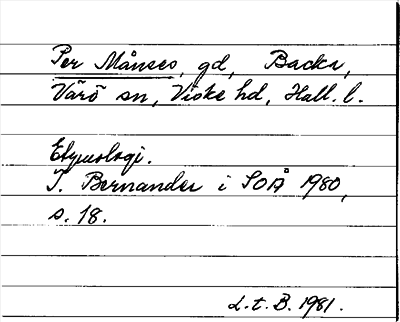 Per Månses, gd, Backa,
Värö sn, Viske hd, Hall. l.
Etymologi.
T. Bernander i SOÅ 1980,
s. 18.
L.t.B. 1981.